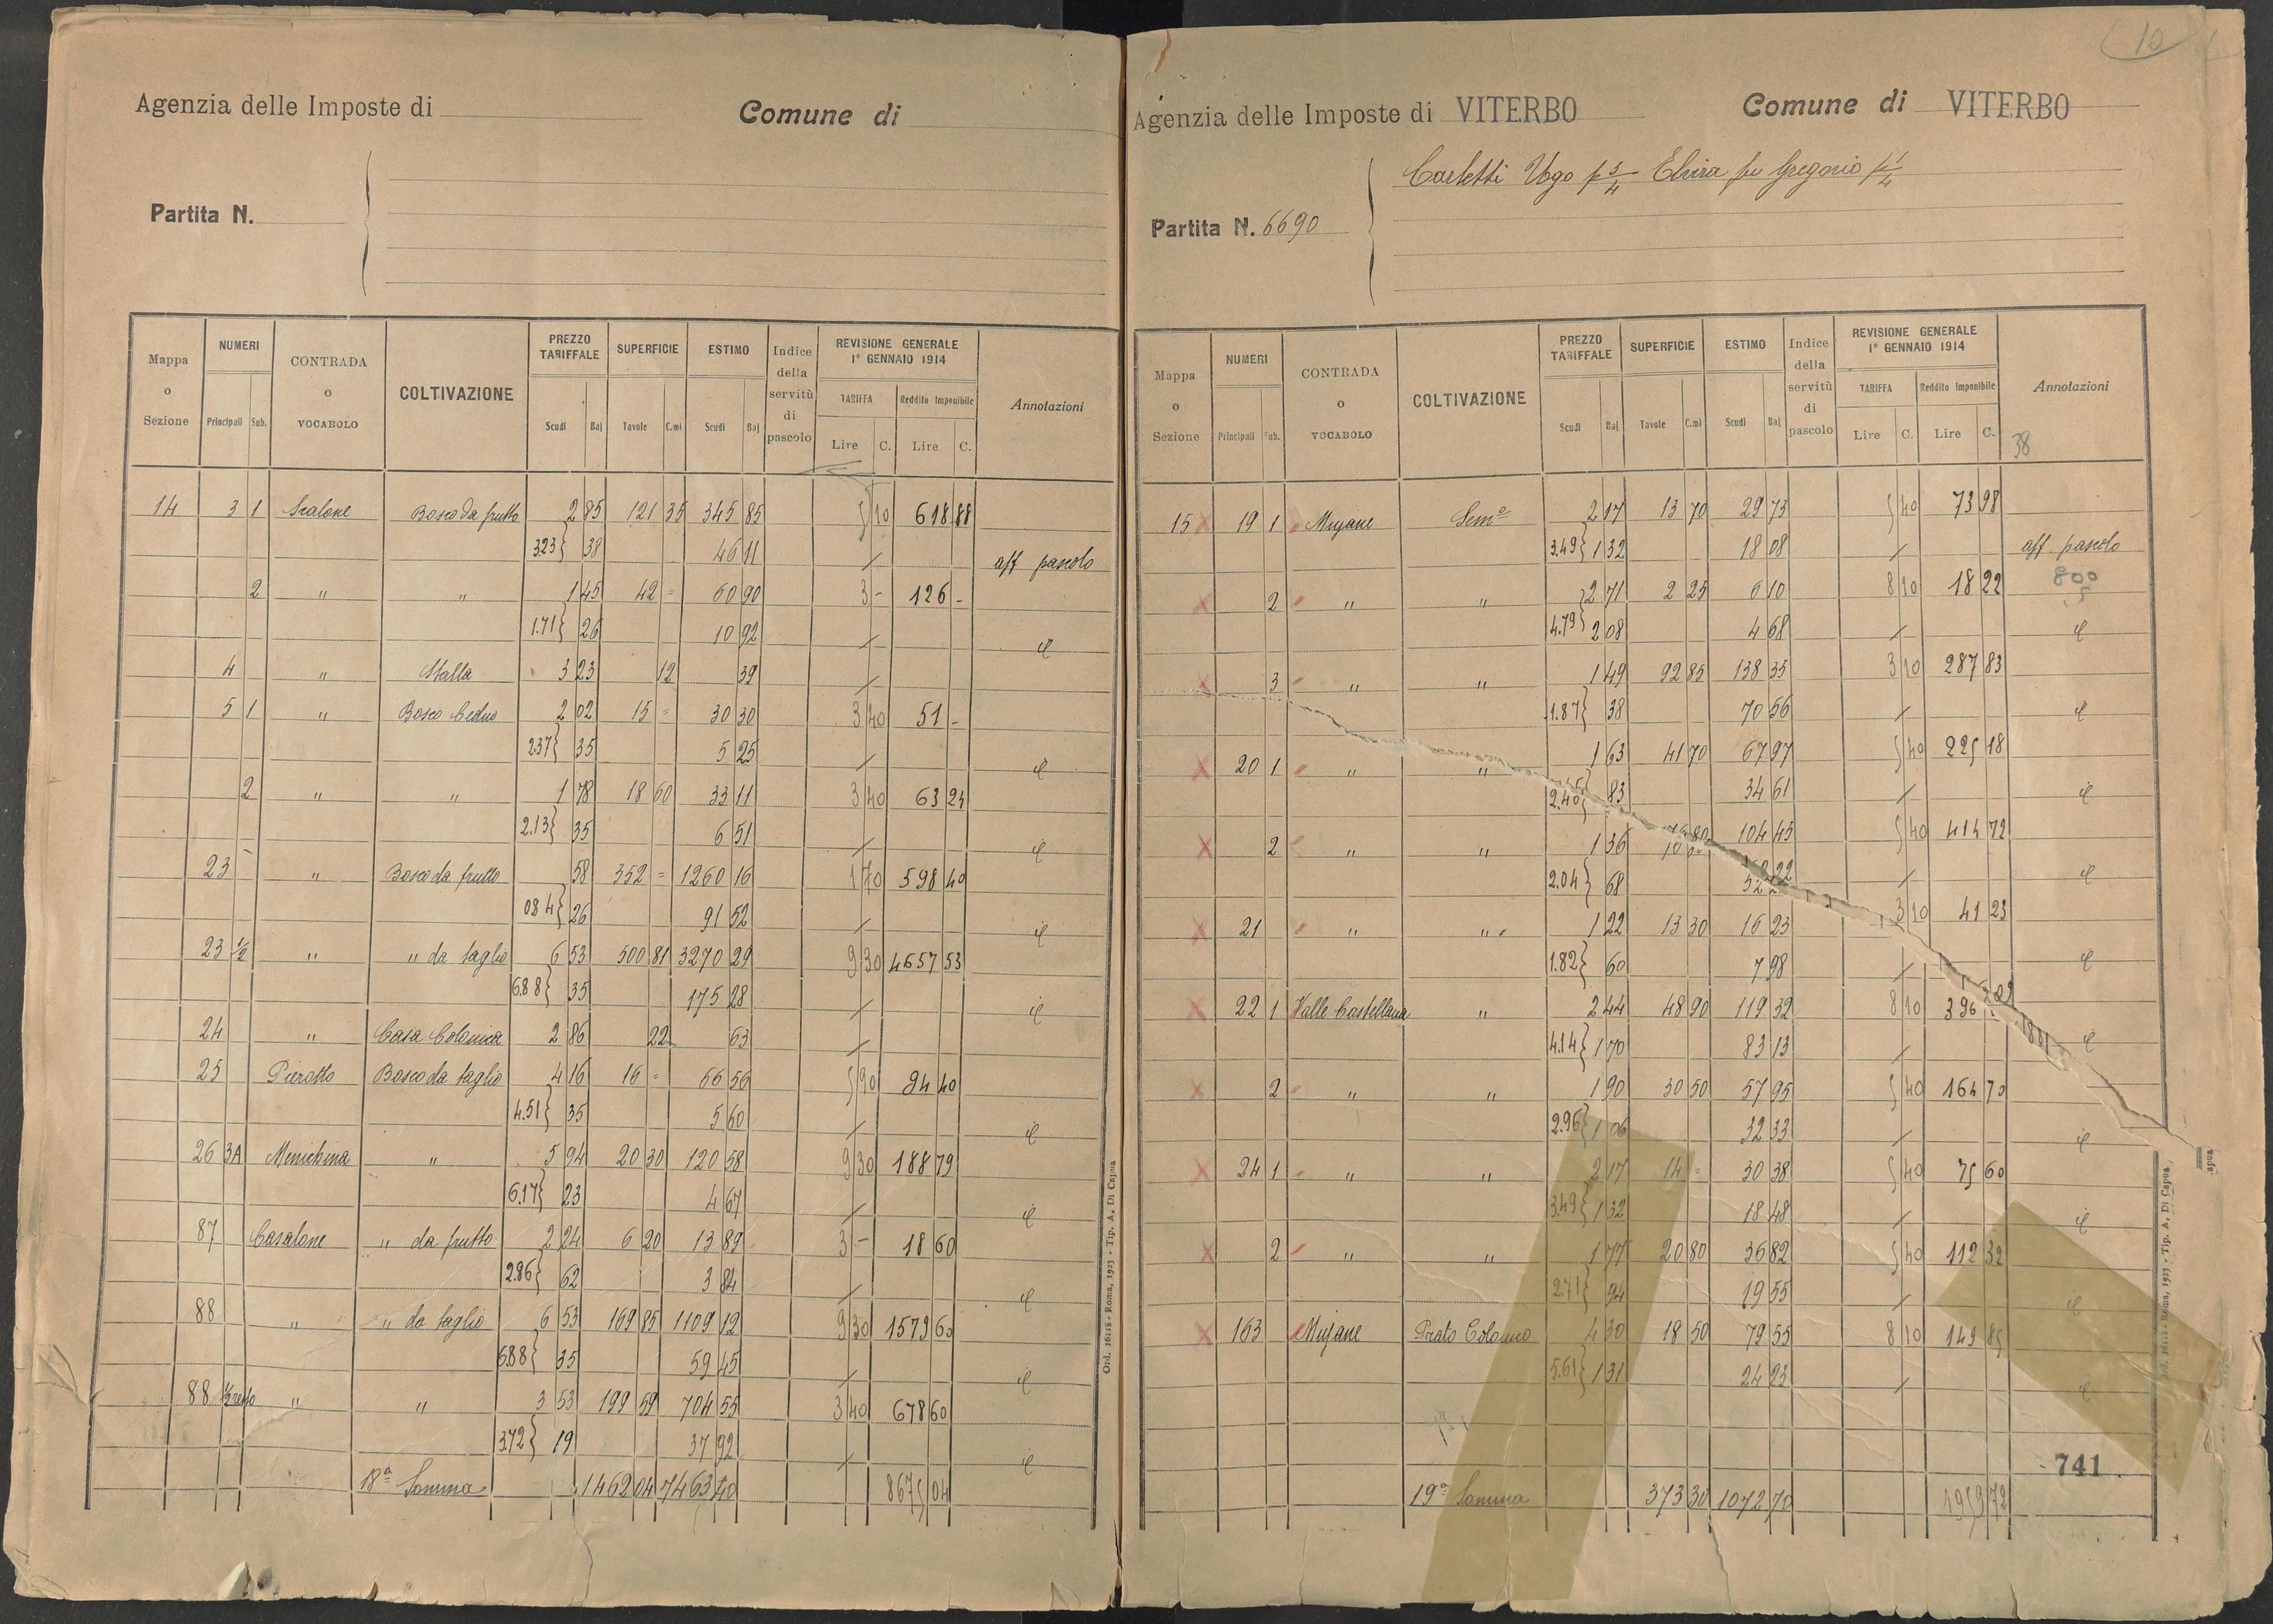 Agenzia delle Imposte di Comune di
Partita N.
Mappa o Sezione NUMERI Principali Sub. CONTRADA o VOCABOLO COLTIVAZIONE PREZZO TARIFFALE Scudi Baj SUPERFICIE Tavole C.mi ESTIMO Scudi Baj Indice della servitù di pascolo REVISIONE GENERALE 1° GENNAIO 1914 TARIFFA Lire C. Reddito Imponibile Lire C. Annotazioni
14 3 1 Scalone Bosco da frutto 2 85 121 35 345 85 5 10 618 88
3.23} 38 46 11 / aff pascolo
2 " " 1 45 42 = 60 90 3 - 126 -
1.71} 26 10 92 /
4 " Stalla 3 23 12 39 /
5 1 " Bosco Ceduo 2 02 15 = 30 30 3 40 51 -
2.37} 35 5 25 /
2 " " 1 78 18 60 33 11 3 40 63 24
2.13} 35 6 51 /
23 - " Bosco da frutto 58 352 = 1260 16 1 70 598 40
084} 26 91 52 /
23 1/2 " " da taglio 6 53 500 81 3270 29 9 30 4657 53
6.88} 35 175 28 /
24 " Casa Colonica 2 86 22 63 /
25 Pierotto Bosco da taglio 4 16 16 = 66 56 5 90 94 40
4.51} 35 5 60 /
26 3A Menichina " 5 94 20 30 120 58 9 30 188 79
6.17} 23 4 67 /
87 Casalone " da frutto 2 24 6 20 13 89 3 - 18 60
2.86} 62 3 84 /
88 " " da taglio 6 53 169 85 1109 12 9 30 1579 60
6.88} 35 59 45 /
88 " " 3 53 199 59 704 55 3 40 678 60
3.72} 19 37 92 /
18ª Somma 1462 04 7463 40 8675 04
Ord. 16118 - Roma, 1923 - Tip. A. Di Capua
10
Agenzia delle Imposte di VITERBO Comune di VITERBO
Carletti Ugo p 3/4 Elvira fu Gregorio p 1/4
Partita N. 6690
Mappa o Sezione NUMERI Principali Sub. CONTRADA o VOCABOLO COLTIVAZIONE PREZZO TARIFFALE Scudi Baj SUPERFICIE Tavole C.mi ESTIMO Scudi Baj Indice della servitù di pascolo REVISIONE GENERALE 1° GENNAIO 1914 TARIFFA Lire C. Reddito Imponibile Lire C. Annotazioni
38
15 x 19 1 Mujane Semo 2 17 13 70 29 73 5 40 73 98
3.49} 1 32 18 08 / aff pascolo
x 2 " " 2 71 2 25 6 10 8 10 18 22 800
4.79} 2 08 4 68 /
x 3 " " 1 49 92 85 138 35 3 10 287 83
1.87} 38 70 56 /
x 20 1 " " 1 63 41 70 67 97 5 40 225 18
2.46} 83 34 61 /
x 2 " " 1 36 76 80 104 45 5 40 414 72
2.04} 68 52 22 /
x 21 " " 1 22 13 30 16 23 3 10 41 23
1.82} 60 7 98 /
x 22 1 Valle Castellana " 2 44 48 90 119 32 8 10 396 09
4.14} 1 70 83 13 /
x 2 " " 1 90 30 50 57 95 5 40 164 70
2.96} 1 06 32 33 /
x 24 1 " " 2 17 14 = 30 38 5 40 75 60
3.49} 1 32 18 48 /
x 2 " " 1 77 20 80 36 82 5 40 112 32
2.71} 94 19 55 /
x 163 Mujane Prato Colonico 4 30 18 50 79 55 8 10 149 85
5.61} 1 31 24 23 /
741
19ª Somma 373 30 1072 70 1959 72
Ord. 16118 - Roma, 1923 - Tip. A. Di Capua
apua